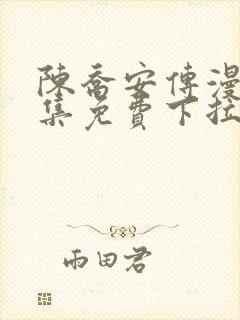 陳喬安傳漫
集免費下拉
雨田君